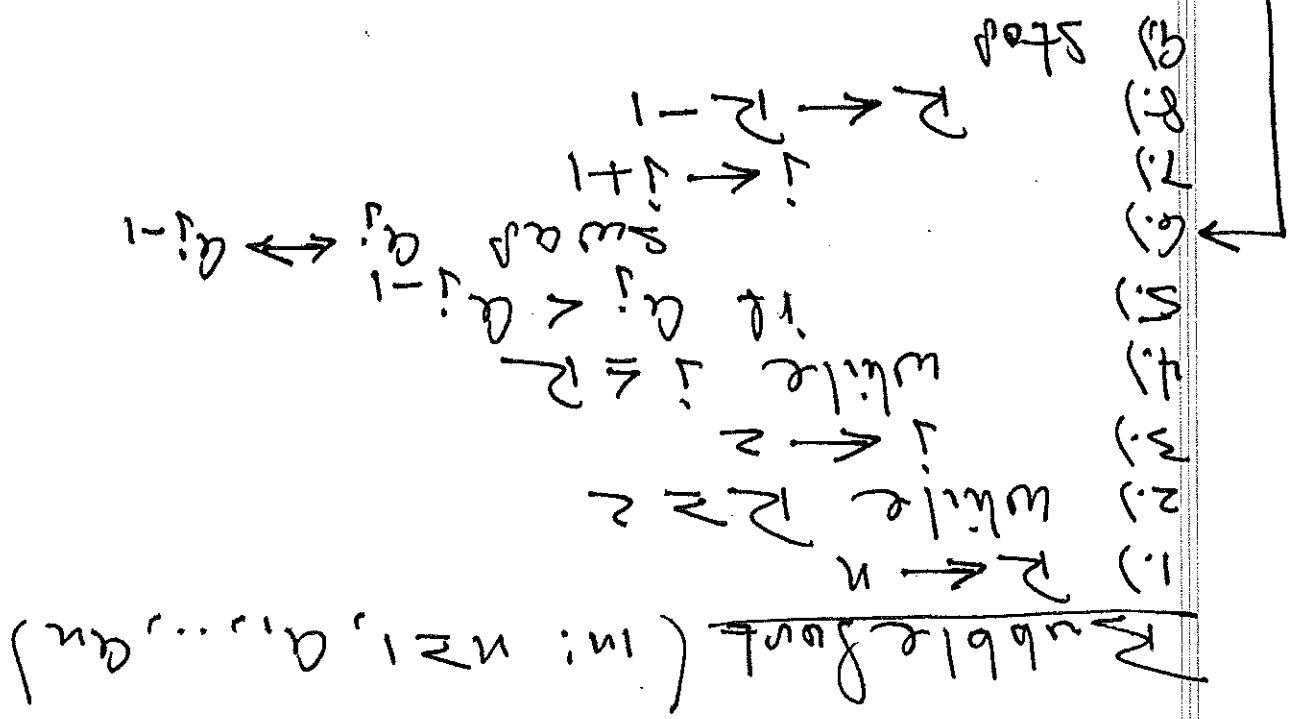 BubbleSort (in: n≥1, a₁, ..., aₙ)
1.) R ← n
2.) while R ≥ 2
3.) i ← 2
4.) while i ≤ R
5.) if aᵢ < aᵢ₋₁
6.) swap aᵢ ↔ aᵢ₋₁
7.) i ← i+1
8.) R ← R-1
9) stop